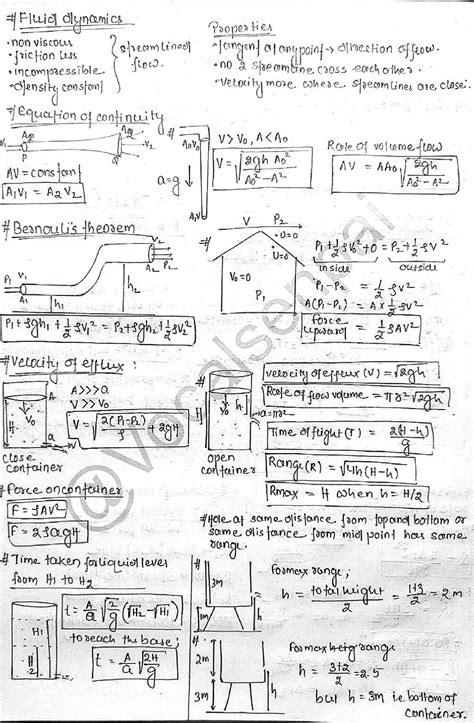 # Fluid dynamics
• non viscous
• friction less
• incompressible
• density constant
streamlined flow.
Properties
• Tangent at any point → direction of flow.
• no 2 streamline cross each other.
• velocity more where streamlines are close.
# Equation of continuity
AV = constant
A₁V₁ = A₂V₂
#
A₀V₀
a=g
A,V
V > V₀, A < A₀
V = √(2gh A₀² / A₀² - A²)
Rate of volume flow
AV = AA₀ √(2gh / A₀² - A²)
# Bernouli's theorem
P₁ + ρgh₁ + ½ρv₁² = P₂ + ρgh₂ + ½ρv₂²
#
V P₂
V₀=0
P₁
P₁ + ½ρv₀² + 0 = P₂ + ½ρv²
inside outside
P₁ - P₂ = ½ρv²
A(P₁-P₂) = A × ½ρv²
force upward = ½ρAV²
# Velocity of efflux :
A >>> a
V >> V₀
V = √(2(P₁-P₂)/ρ + 2gH)
close
container
#
open
container
a = πr²
velocity of efflux (V) = √2gh
Rate of flow volume = πr²√2gh
Time of flight (T) = √(2(H-h)/g)
Range (R) = √4h(H-h)
Rmax = H when h = H/2
# Force on container :
F = ρAV²
F = 2ρagH
# Hole at same distance from top and bottom or
same distance from mid point has same
range.
# Time taken for liquid level
from H₁ to H₂
t = A/a √(2/g) (√H₂ - √H₁)
to reach the base;
t = A/a √(2H/g)
#
3m
1m
h
For max range;
h = total height / 2 = 1+3 / 2 = 2 m
#
2m
3m
h
For max range
h = 3+2 / 2 = 2.5
but h = 3m i.e bottom of
container.